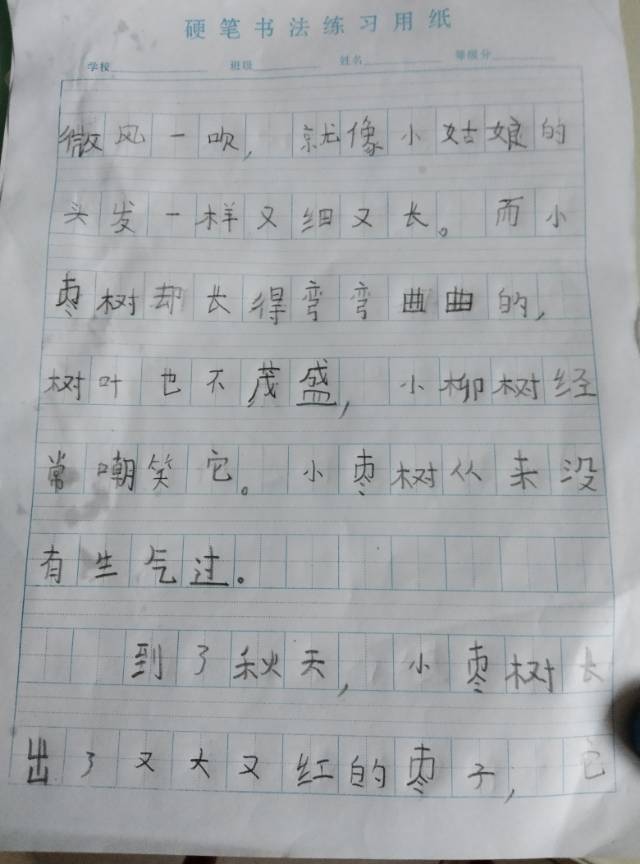 硬笔书法练习用纸
学校 班级 姓名 等级分
微风一吹，就像小姑娘的
头发一样又细又长。而小
枣树却长得弯弯曲曲的，
树叶也不茂盛，小柳树经
常嘲笑它。小枣树从来没
有生气过。
到了秋天，小枣树长
出了又大又红的枣子，它